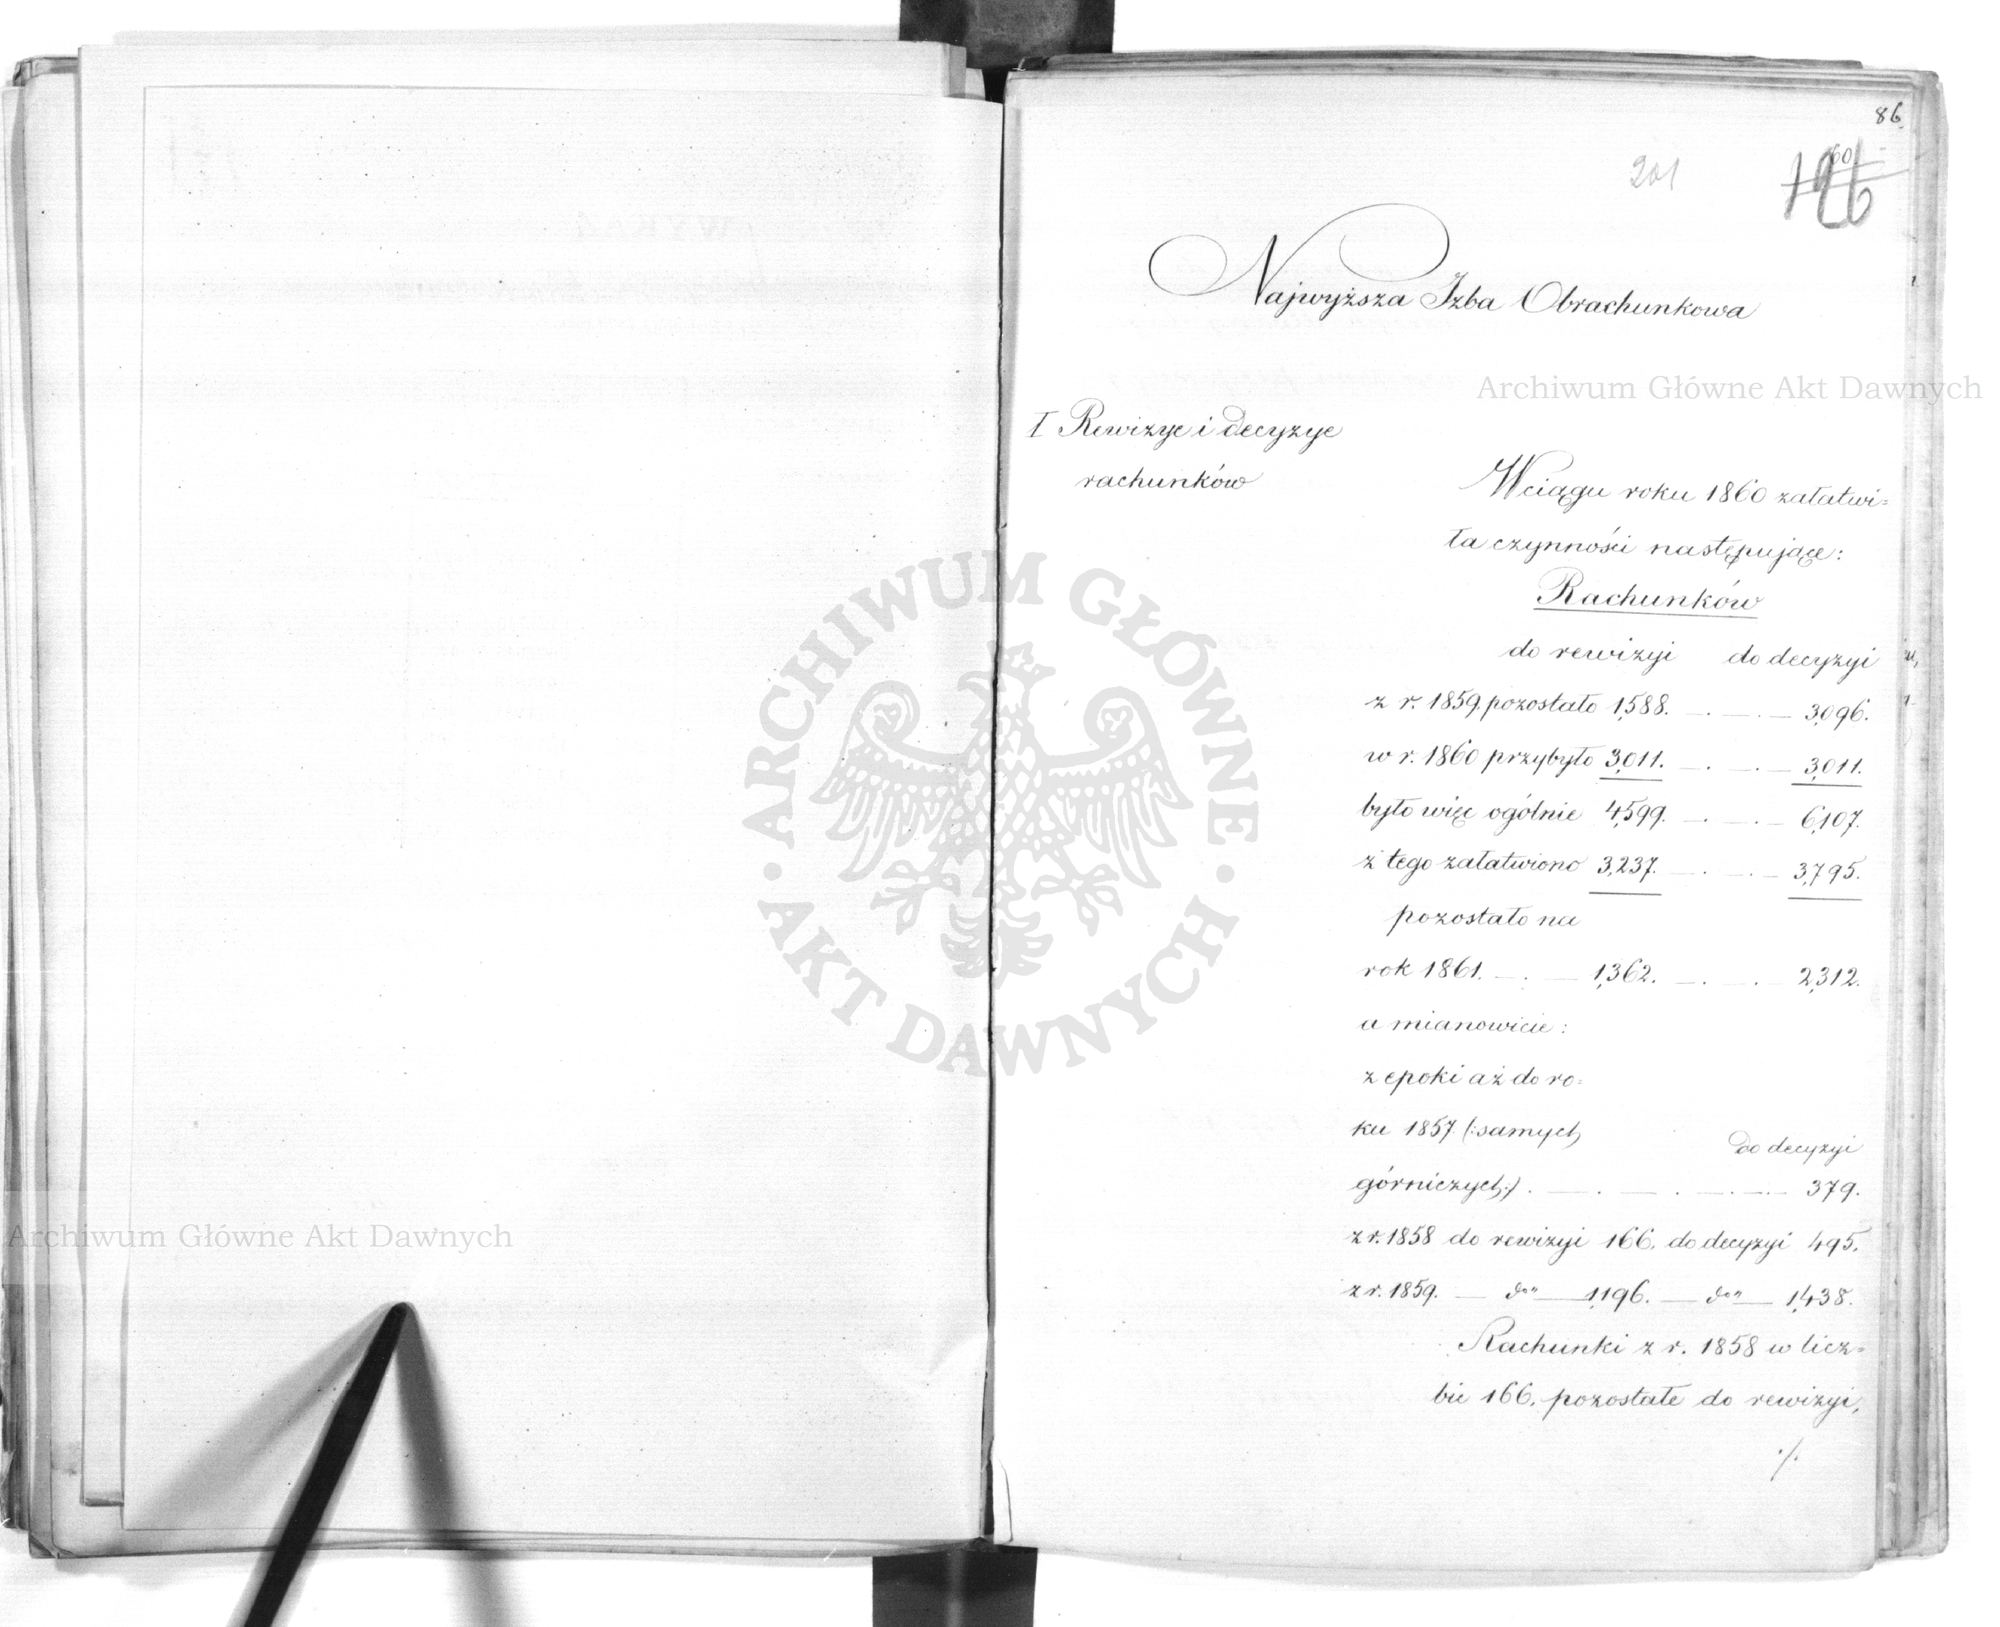 86.
60
201
126
Najwyższa Izba Obrachunkowa
Archiwum Główne Akt Dawnych
I Rewizye i decyzye
rachunków
Wciągu roku 1860 załatwi=
ła czynności następujące:
Rachunków
do rewizyi do decyzyi
z r. 1859. pozostało 1,588. — . — . — 3,096.
w r. 1860 przybyło 3,011. — . — . — 3,011.
było więc ogólnie 4,599. — . — . — 6,107.
z tego załatwiono 3,237. — . — . — 3,795.
pozostało na
rok 1861. — . — 1,362. — . — . — 2,312.
a mianowicie:
z epoki aż do ro=
ku 1857 (:samych
do decyzyi
górniczych:) . — . — . — . — . — 379.
z r. 1858 do rewizyi 166. do decyzyi 495.
z r. 1859. — do" — 1,196. — do" — 1,438.
Rachunki z r. 1858 w licz=
bie 166. pozostałe do rewizyi,
./.
ARCHIWUM GŁÓWNE
AKT DAWNYCH
Archiwum Główne Akt Dawnych